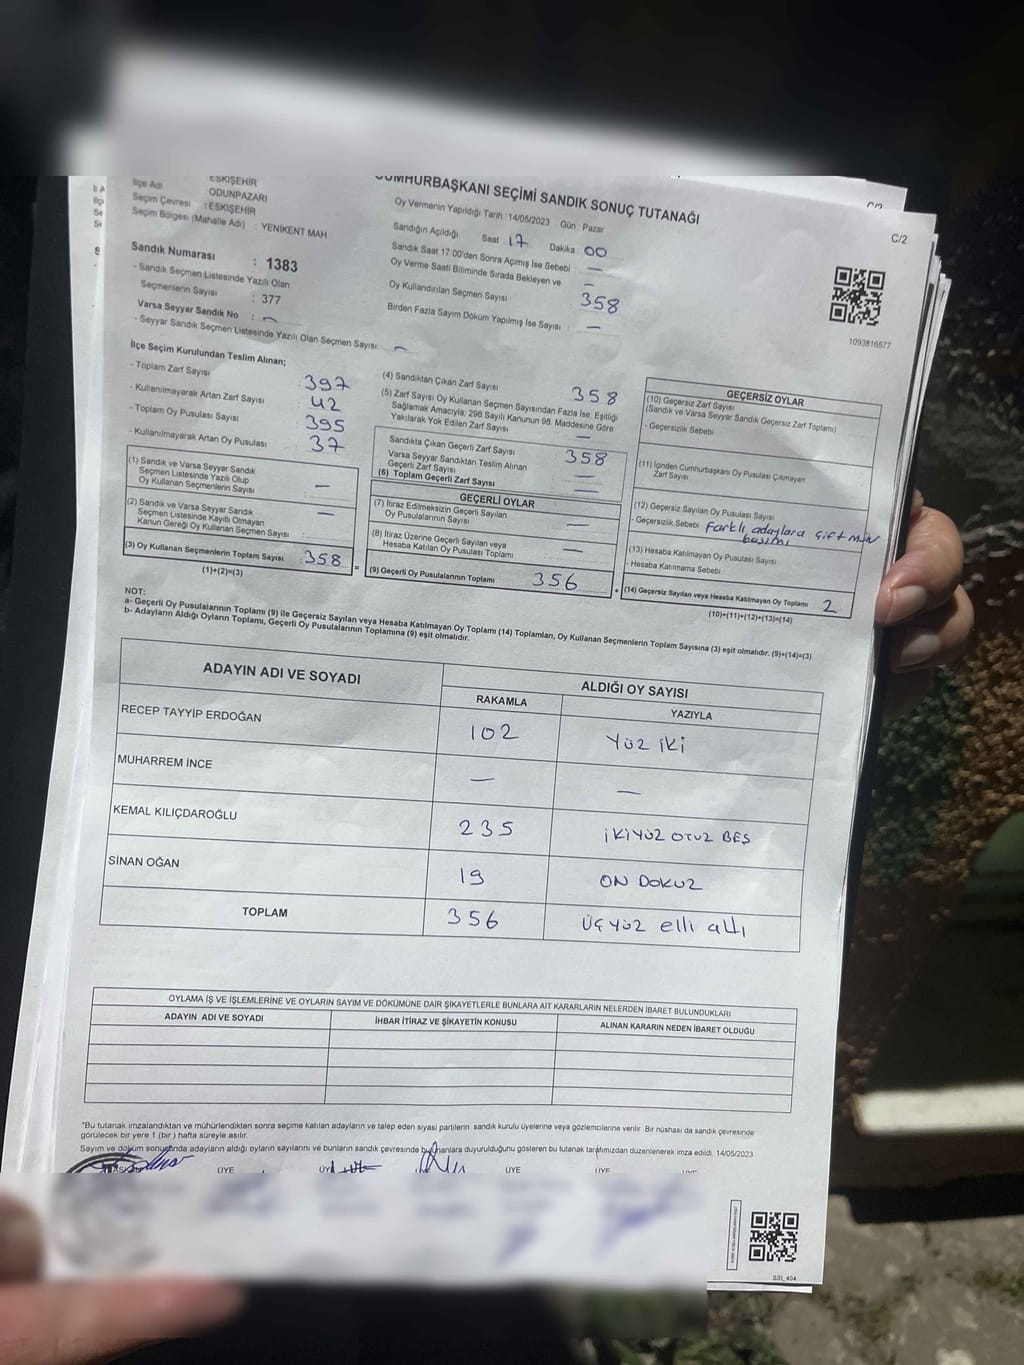 CUMHURBAŞKANI SEÇİMİ SANDIK SONUÇ TUTANAĞI
C/2
ESKİŞEHİR
İlçe Adı : ODUNPAZARI
Seçim Çevresi : ESKİŞEHİR
Seçim Bölgesi (Mahalle Adı) : YENİKENT MAH
Oy Vermenin Yapıldığı Tarih :14/05/2023 Gün : Pazar
Sandığın Açıldığı Saat 17 Dakika 00
Sandık Saat 17:00'den Sonra Açımış İse Sebebi —
Oy Verme Saati Bitiminde Sırada Bekleyen ve
Oy Kullandırılan Seçmen Sayısı 358
Birden Fazla Sayım Döküm Yapılmış İse Sayısı —
Sandık Numarası : 1383
- Sandık Seçmen Listesinde Yazılı Olan
Seçmenlerin Sayısı : 377
Varsa Seyyar Sandık No : —
- Seyyar Sandık Seçmen Listesinde Yazılı Olan Seçmen Sayısı —
1093816577
İlçe Seçim Kurulundan Teslim Alınan;
- Toplam Zarf Sayısı 397
- Kullanılmayarak Artan Zarf Sayısı 42
- Toplam Oy Pusulası Sayısı 395
- Kullanılmayarak Artan Oy Pusulası 37
(1) Sandık ve Varsa Seyyar Sandık
Seçmen Listesinde Yazılı Olup
Oy Kullanan Seçmenlerin Sayısı —
(2) Sandık ve Varsa Seyyar Sandık
Seçmen Listesinde Kayıtlı Olmayan
Kanun Gereği Oy Kullanan Seçmen Sayısı —
(3) Oy Kullanan Seçmenlerin Toplam Sayısı 358
(1)+(2)=(3)
(4) Sandıktan Çıkan Zarf Sayısı 358
(5) Zarf Sayısı Oy Kullanan Seçmen Sayısından Fazla İse, Eşitliği
Sağlamak Amacıyla; 298 Sayılı Kanunun 98. Maddesine Göre
Yakılarak Yok Edilen Zarf Sayısı —
Sandıkta Çıkan Geçerli Zarf Sayısı 358
Varsa Seyyar Sandıktan Teslim Alınan
Geçerli Zarf Sayısı —
(6) Toplam Geçerli Zarf Sayısı —
GEÇERLİ OYLAR
(7) İtiraz Edilmeksizin Geçerli Sayılan
Oy Pusulalarının Sayısı —
(8) İtiraz Üzerine Geçerli Sayılan veya
Hesaba Katılan Oy Pusulası Toplamı —
= (9) Geçerli Oy Pusulalarının Toplamı 356
GEÇERSİZ OYLAR
(10) Geçersiz Zarf Sayısı
(Sandık ve Varsa Seyyar Sandık Geçersiz Zarf Toplamı)
- Geçersizlik Sebebi
(11) İçinden Cumhurbaşkanı Oy Pusulası Çıkmayan
Zarf Sayısı
(12) Geçersiz Sayılan Oy Pusulası Sayısı
- Geçersizlik Sebebi Farklı adaylara çift
basımı
(13) Hesaba Katılmayan Oy Pusulası Sayısı
- Hesaba Katılmama Sebebi
+ (14) Geçersiz Sayılan veya Hesaba Katılmayan Oy Toplamı 2
(10)+(11)+(12)+(13)=(14)
NOT:
a- Geçerli Oy Pusulalarının Toplamı (9) ile Geçersiz Sayılan veya Hesaba Katılmayan Oy Toplamı (14) Toplamları, Oy Kullanan Seçmenlerin Toplam Sayısına (3) eşit olmalıdır. (9)+(14)=(3)
b- Adayların Aldığı Oyların Toplamı, Geçerli Oy Pusulalarının Toplamına (9) eşit olmalıdır.
ADAYIN ADI VE SOYADI ALDIĞI OY SAYISI
RAKAMLA YAZIYLA
RECEP TAYYİP ERDOĞAN 102 YÜZ İKİ
MUHARREM İNCE — —
KEMAL KILIÇDAROĞLU 235 İKİYÜZ OTUZ BEŞ
SİNAN OĞAN 19 ON DOKUZ
TOPLAM 356 ÜÇYÜZ elli altı
OYLAMA İŞ VE İŞLEMLERİNE VE OYLARIN SAYIM VE DÖKÜMÜNE DAİR ŞİKAYETLERLE BUNLARA AİT KARARLARIN NELERDEN İBARET BULUNDUKLARI
ADAYIN ADI VE SOYADI İHBAR İTİRAZ VE ŞİKAYETİN KONUSU ALINAN KARARIN NEDEN İBARET OLDUĞU
"Bu tutanak imzalandıktan ve mühürlendikten sonra seçime katılan adayların ve talep eden siyasi partilerin sandık kurulu üyelerine veya gözlemcilerine verilir. Bir nüshası da sandık çevresinde
görülecek bir yere 1 (bir ) hafta süreyle asılır.
Sayım ve döküm sonucunda adayların aldığı oyların sayılarını ve bunların sandık çevresinde bulunanlara duyurulduğunu gösteren bu tutanak tarafımızdan düzenlenerek imza edildi. 14/05/2023
ÜYE ÜYE ÜYE ÜYE ÜYE